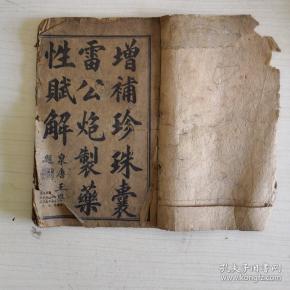 增補珍珠囊
雷公炮製藥
性賦解
泉唐王
題
孔夫子旧书网